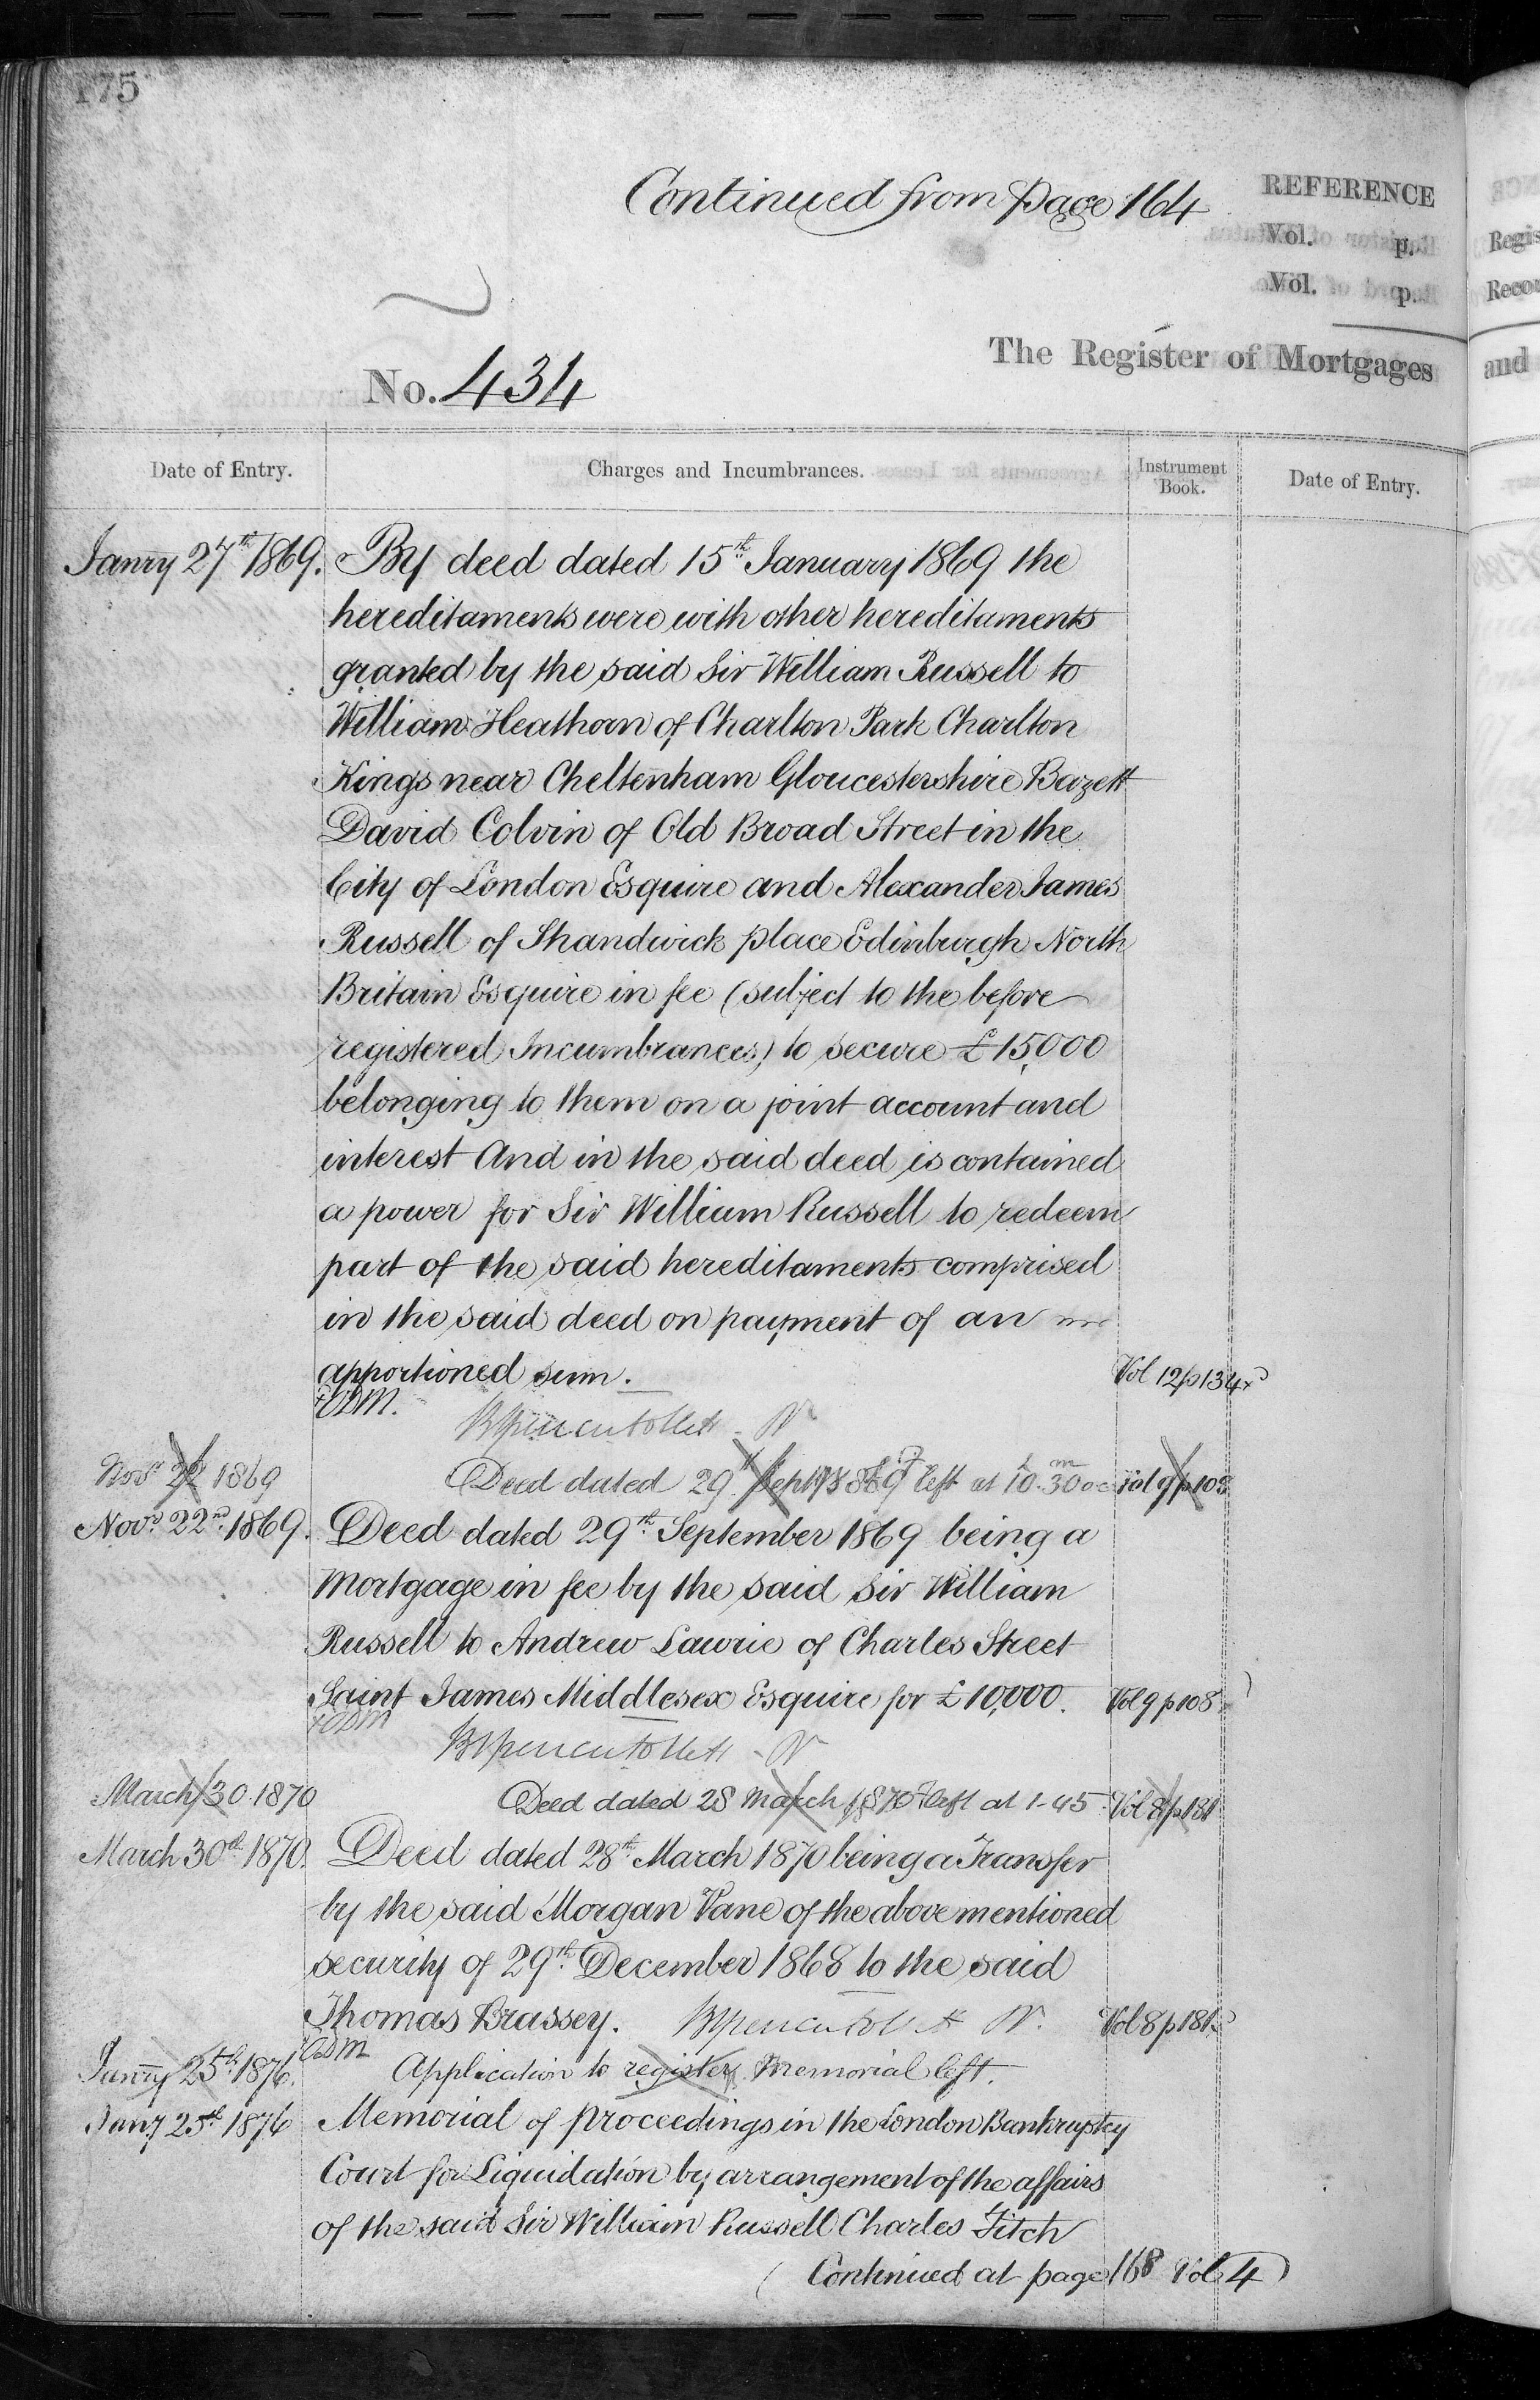 175
Continued from page 164
REFERENCE
Vol. p.
Vol. p.
The Register of Mortgages
No. 434
Date of Entry. Charges and Incumbrances. Instrument Book. Date of Entry.
Janry 27th 1869. By deed dated 15th January 1869 the
hereditaments were with other hereditaments
granted by the said Sir William Russell to
William Heathorn of Charlton Park Charlton
Kings near Cheltenham Gloucestershire Bazett
David Colvin of Old Broad Street in the
City of London Esquire and Alexander James
Russell of Shandwick place Edinburgh North
Britain Esquire in fee (subject to the before
registered Incumbrances) to secure £15,000
belonging to them on a joint account and
interest And in the said deed is contained
a power for Sir William Russell to redeem
part of the said hereditaments comprised
in the said deed on payment of an
apportioned sum. Vol 12 p 134
ODM.
Novr 22 1869 Deed dated 29th Sept 1869 left at 10.30 Vol 9 p 108
Novr 22nd 1869. Deed dated 29th September 1869 being a
Mortgage in fee by the said Sir William
Russell to Andrew Lawrie of Charles Street
Saint James Middlesex Esquire for £10,000. Vol 9 p 108
ODM
March 30 1870 Deed dated 28 March 1870 left at 1-45 Vol 8 p 181
March 30th 1870. Deed dated 28th March 1870 being a Transfer
by the said Morgan Vane of the above mentioned
security of 29th December 1868 to the said
Thomas Brassey. Vol 8 p 181
ODM
Janry 25th 1876. Application to register Memorial left.
Jany 25th 1876 Memorial of proceedings in the London Bankruptcy
Court for Liquidation by arrangement of the affairs
of the said Sir William Russell Charles Fitch
(Continued at page 168 Vol 4)